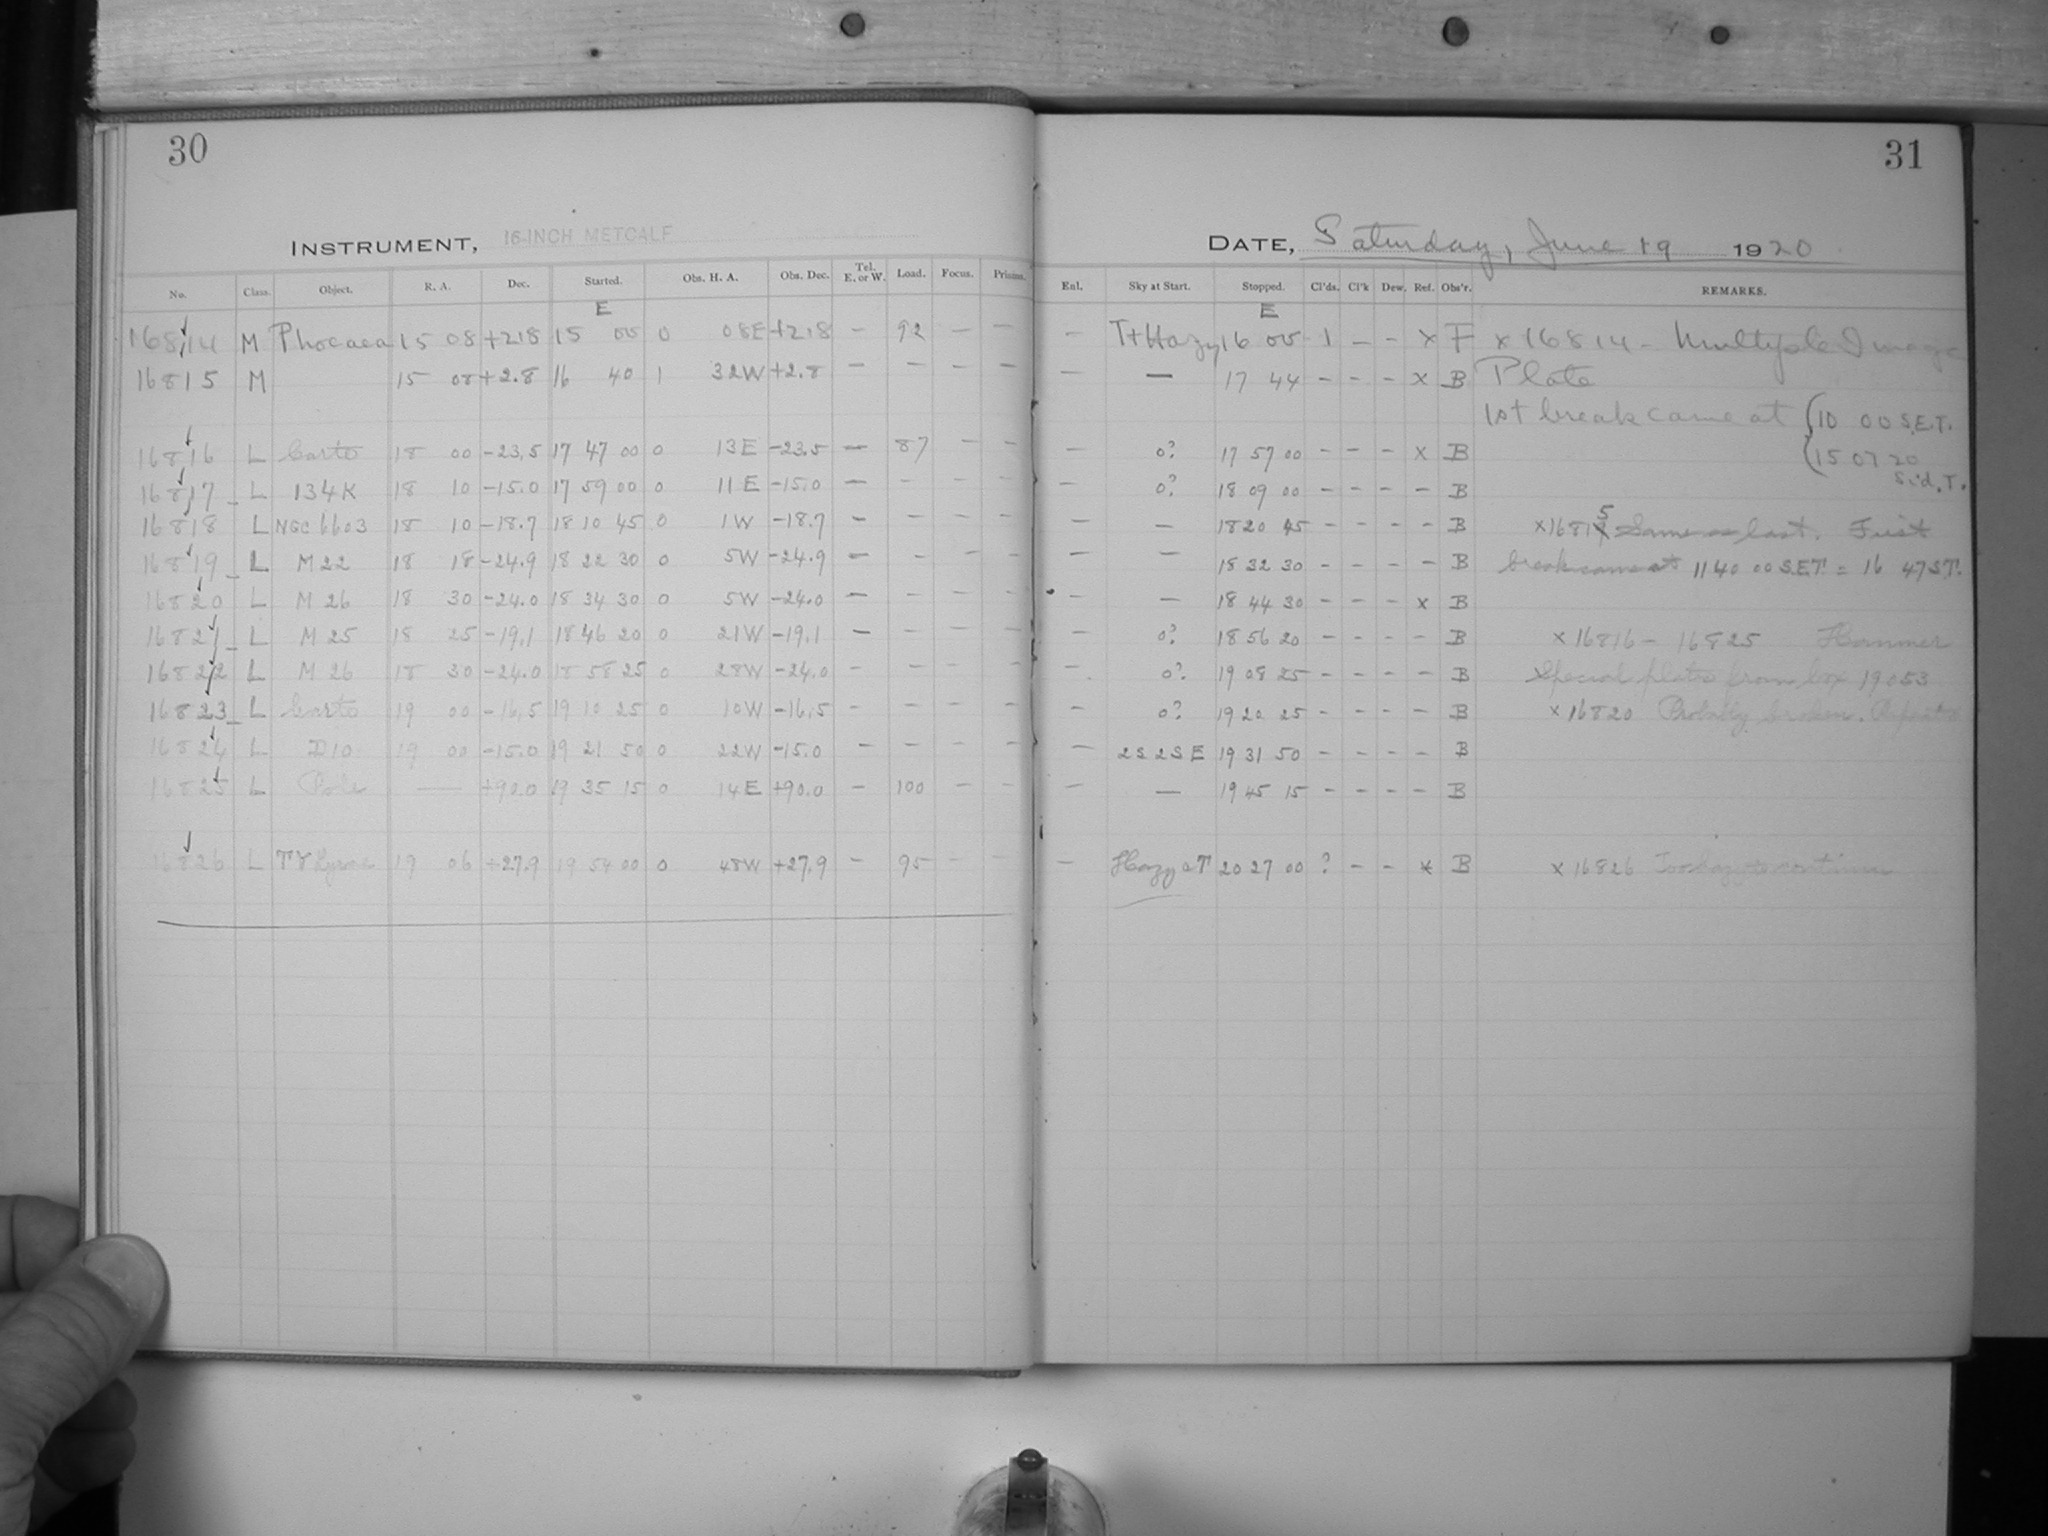 30
31
INSTRUMENT, 16-INCH METCALF
DATE, Saturday, June 19 1920
No. Class. Object. R. A. Dec. Started. Obs. H. A. Obs. Dec. Tel. E. or W. Load. Focus. Prisms. Enl. Sky at Start. Stopped. Cl'ds. Cl'k Dew. Ref. Obs'r. REMARKS.
E E
16814 M Phocaea 15 08 +2.8 15 00 0 08E +2.8 - 92 - - - T+Hazy 16 00 1 - - x F x 16814 - Multiple Image
16815 M 15 08 +2.8 16 40 1 32W +2.8 - - - - - - 17 44 - - - x B Plate
1st break came at (10 00 S.E.T.
16816 L 18 00 -23.5 17 47 00 0 13E -23.5 - 87 - - - 0? 17 57 00 - - - x B (15 07 20
Sid. T.
16817 L 134K 18 10 -15.0 17 59 00 0 11E -15.0 - - - - - 0? 18 09 00 - - - - B
16818 L NGC 6603 18 10 -18.7 18 10 45 0 1W -18.7 - - - - - - 18 20 45 - - - - B x16815 Same as last. First
16819 L M22 18 18 -24.9 18 22 30 0 5W -24.9 - - - - - - 18 32 30 - - - - B break came at 11 40 00 S.E.T. = 16 47 S.T.
16820 L M 26 18 30 -24.0 18 34 30 0 5W -24.0 - - - - - - 18 44 30 - - - x B
16821 L M 25 18 25 -19.1 18 46 20 0 21W -19.1 - - - - - 0? 18 56 20 - - - - B x 16816 - 16825 Hammer
16822 L M 26 18 30 -24.0 18 58 25 0 28W -24.0 - - - - - 0? 19 08 25 - - - - B Special plates from box 19053
16823 L 19 00 -16.5 19 10 25 0 10W -16.5 - - - - - 0? 19 20 25 - - - - B x 16820 Probably broken.
16824 L 19 00 -15.0 19 21 50 0 22W -15.0 - - - - - 2S 2SE 19 31 50 - - - - B
16825 L Pole - +90.0 19 35 15 0 14E +90.0 - 100 - - - - 19 45 15 - - - - B
16826 L TT Lyrae 19 06 +27.9 19 54 00 0 48W +27.9 - 95 - - - Hazy 20 27 00 ? - - x B x 16826 Too hazy to continue